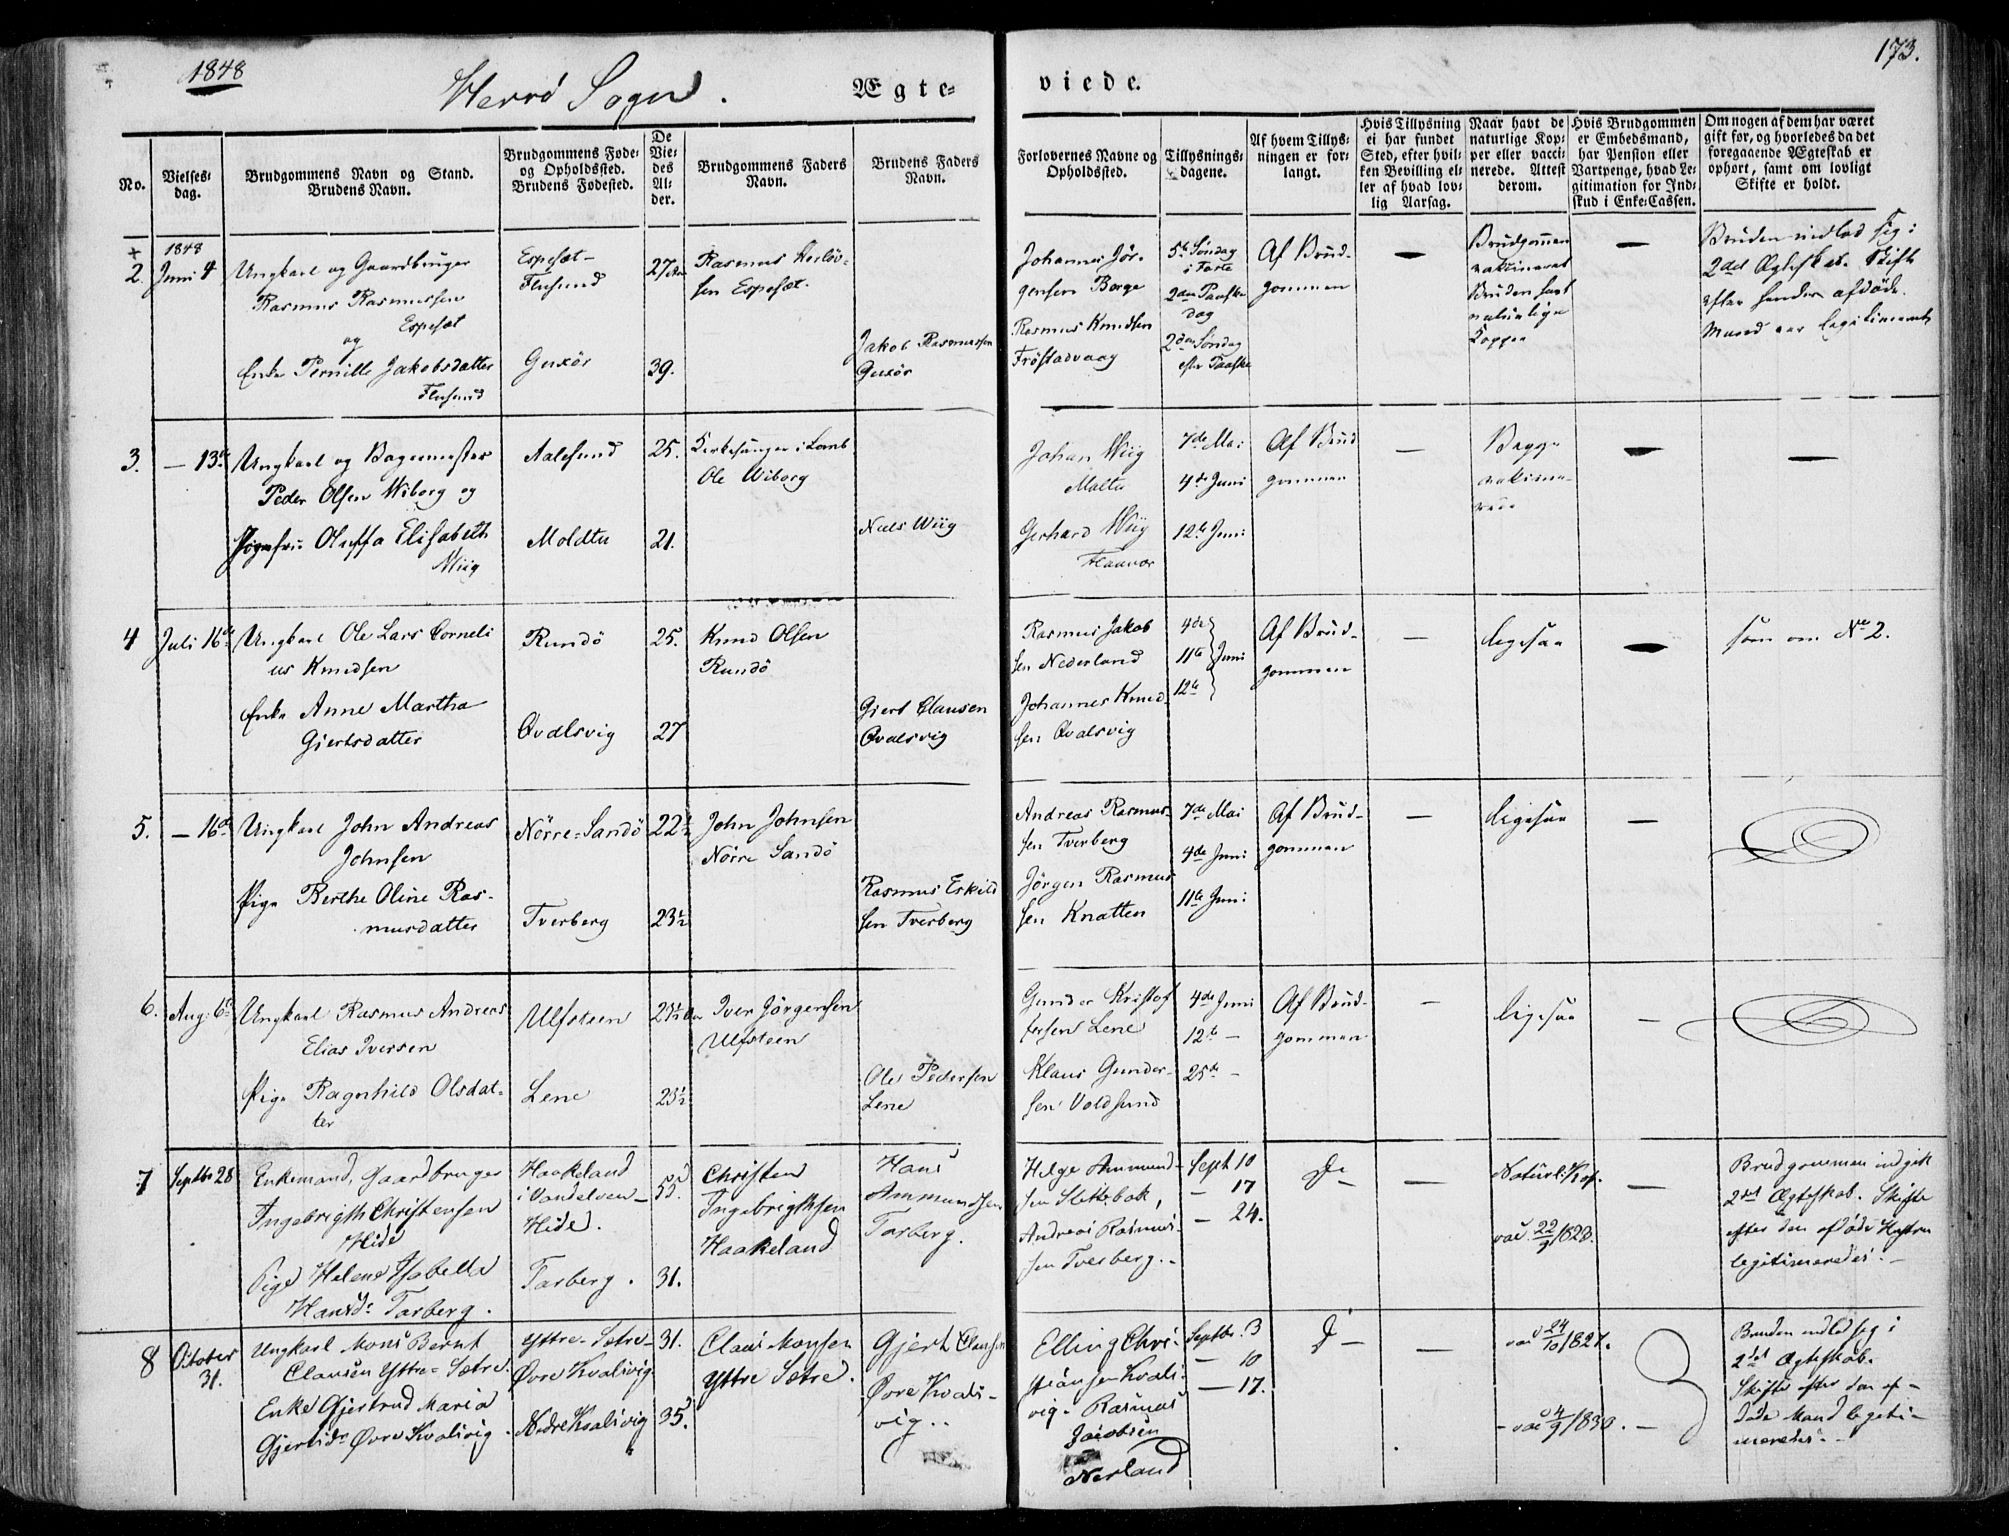 1848
Herrö Sogn.
Ægte-
viede.
173.
No.
Vielses-
dag.
Brudgommens Navn og Stand.
Brudens Navn.
Brudgommens Føde-
og Opholdssted.
Brudens Fødested.
De
Vie-
des
Al-
der.
Brudgommens Faders
Navn.
Brudens Faders
Navn.
Forlovernes Navne og
Opholdssted.
Tillysnings-
dagene.
Af hvem Tillys-
ningen er for-
langt.
Hvis Tillysning
ei har fundet
Sted, efter hvil-
ken Bevilling el-
ler af hvad lov-
lig Aarsag.
Naar havt de
naturlige Kop-
per eller vacci-
nerede. Attest
derom.
Hvis Brudgommen
er Embedsmand,
har Pension eller
Vartpenge, hvad Le-
gitimation for Ind-
skud i Enke-Cassen.
Om nogen af dem har været
gift før, og hvorledes da det
foregaaende Ægteskab er
ophørt, samt om lovligt
Skifte er holdt.
+
2.
1848
Juni 4
Ungkarl og Gaardbruger
Rasmus Rasmussen
Espesæt
og
Enke Pernille Jakobsdatter
Flusund
Espesæt-
Flusund
Guxör
27
39.
Rasmus
sen Espesæt.
Jakob Rasmussen
Guxör
Johannes Jör-
gensen Borge
Rasmus Knudsen
Fröstadvaag
5te Söndag
i Faste
2den Paaske
dag
2den Söndag
efter Paaske
Af Brud-
gommen
—
Brudgommen
vaksineret
Bruden havt
naturlige
Kopper
—
Bruden indlod sig i
2det Ægteskab. Skifte
efter hendes afdöde
Mand var legitimeret
3.
— 13de
Ungkarl og Bagermester
Peder Olsen Wiborg og
Jomfru Oluffa Elisabeth
Wiig
Aalesund
Moldtu
25.
21.
Kirkesanger i Lomb
Ole Wiborg
Niels Wiig
Johan Wiig
Moltu
Gerhard Wiig
Flaavær
7de Mai
4de Juni
12te Juni
Af Brud
gommen
—
Begge
vaksine-
rede
—
—
4
Juli 16de
Ungkarl Ole Lars Corneli
us Knudsen
Enke Anne Martha
Gjertsdatter
Rundö
Qvalsvig
25.
27
Knud Olsen
Rundö
Gjert Clausen
Qvalsvig
Rasmus Jakob
sen Nederland
Johannes Knud-
sen Qvalsvig
4de
11te Juni
12te
Af Brud-
gommen
—
ligesaa
—
som om No 2.
5.
— 16de
Ungkarl John Andreas
Johnsen
Pige Berthe Oline Ras-
musdatter
Nörre-Sandö
Tverberg
22½
23½
John Johnsen
Nörre Sandö
Rasmus Eskild
sen Tverberg
Andreas Rasmus-
sen Tverberg
Jörgen Rasmus
sen Knatten
7de Mai
4de Juni
11te Juni
Af Brud-
gommen
—
ligesaa
—
6.
Aug. 6te
Ungkarl Rasmus Andreas
Elias Iversen
Pige Ragnhild Olsdat-
ter
Ulfsteen
Lene
23½
Iver Jörgensen
Ulfsteen
Ole Pedersen
Lene
Gunder Kristof
fersen Lene
Klaus Gunder-
sen Voldsund
4de Juni
12te —
25de —
Af Brud-
gommen
—
ligesaa
—
7
Septbr 28
Enkemand, Gaardbruger
Ingebrigth Christensen
Hide
Pige Helene Isabella
Hansdr Tarberg.
Haakeland
i Vandelven —
Hide.
Tarberg.
55.
31.
Christen
Ingebrigthsen
Haakeland
Hans
Ammundsen
Tarberg.
Helge Ammund-
sen Slettebak,
Andreas Rasmus-
sen Tverberg.
Sept 10
— 17
— 24.
Do
—
Naturl: Kop.
vac. 22/9 1828.
—
Brudgommen indgik
2det Ægteskab. Skifte
efter den afdöde Hustru
legitimeredes.—
8
October
31.
Ungkarl Mons Bernt
Clausen Yttre-Sætre.
Enke Gjertrud Maria
Gjertsdr Övre Kvalsvig.
Yttre-Sætre-
Övre Kvalsvig.
Nedre Kvalsvig
31.
35.
Claus Monsen
Yttre Sætre.
Gjert Clausen
Övre Kvals-
vig.
Elling Chri-
stiansen Kvals-
vig. Rasmus
Jacobsen
Nerland
Septbr. 3
— 10
— 17.
Do —
—
vac 24/10 1827.
- vac 4/9 1830. —
Bruden indlod sig i
2det Ægteskab.
Skifte efter den af-
döde Mand legiti-
meredes.—